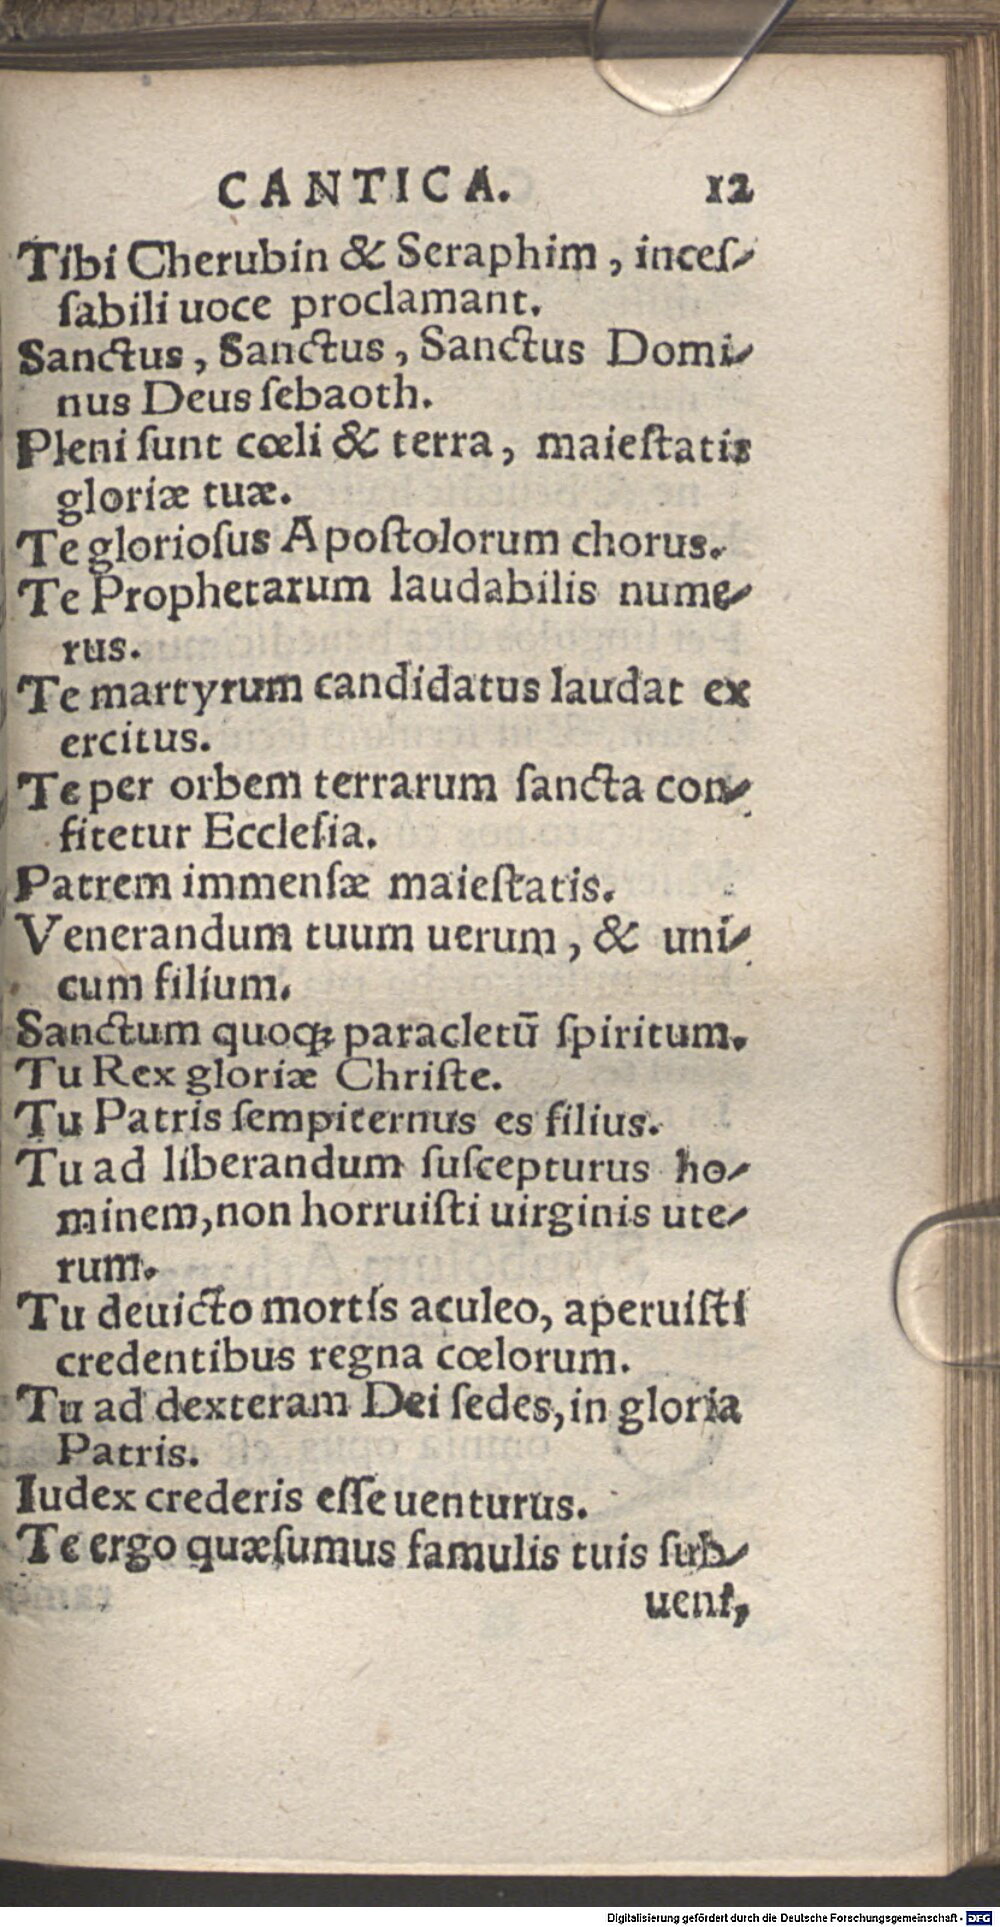 CANTICA. 12
Tibi Cherubin & Seraphim, inceſ-
ſabili uoce proclamant.
Sanctus, Sanctus, Sanctus Domi-
nus Deus ſebaoth.
Pleni ſunt cœli & terra, maieſtatis
gloriæ tuæ.
Te glorioſus Apoſtolorum chorus.
Te Prophetarum laudabilis nume-
rus.
Te martyrum candidatus laudat ex
ercitus.
Te per orbem terrarum ſancta con-
fitetur Eccleſia.
Patrem immenſæ maieſtatis.
Venerandum tuum uerum, & uni-
cum filium.
Sanctum quoqꝫ paracletū ſpiritum.
Tu Rex gloriæ Chriſte.
Tu Patris ſempiternus es filius.
Tu ad liberandum ſuſcepturus ho-
minem, non horruiſti uirginis ute-
rum.
Tu deuicto mortis aculeo, aperuiſti
credentibus regna cœlorum.
Tu ad dexteram Dei ſedes, in gloria
Patris.
Iudex crederis eſſe uenturus.
Te ergo quæſumus famulis tuis ſub-
ueni,
Digitalisierung gefördert durch die Deutsche Forschungsgemeinschaft - DFG